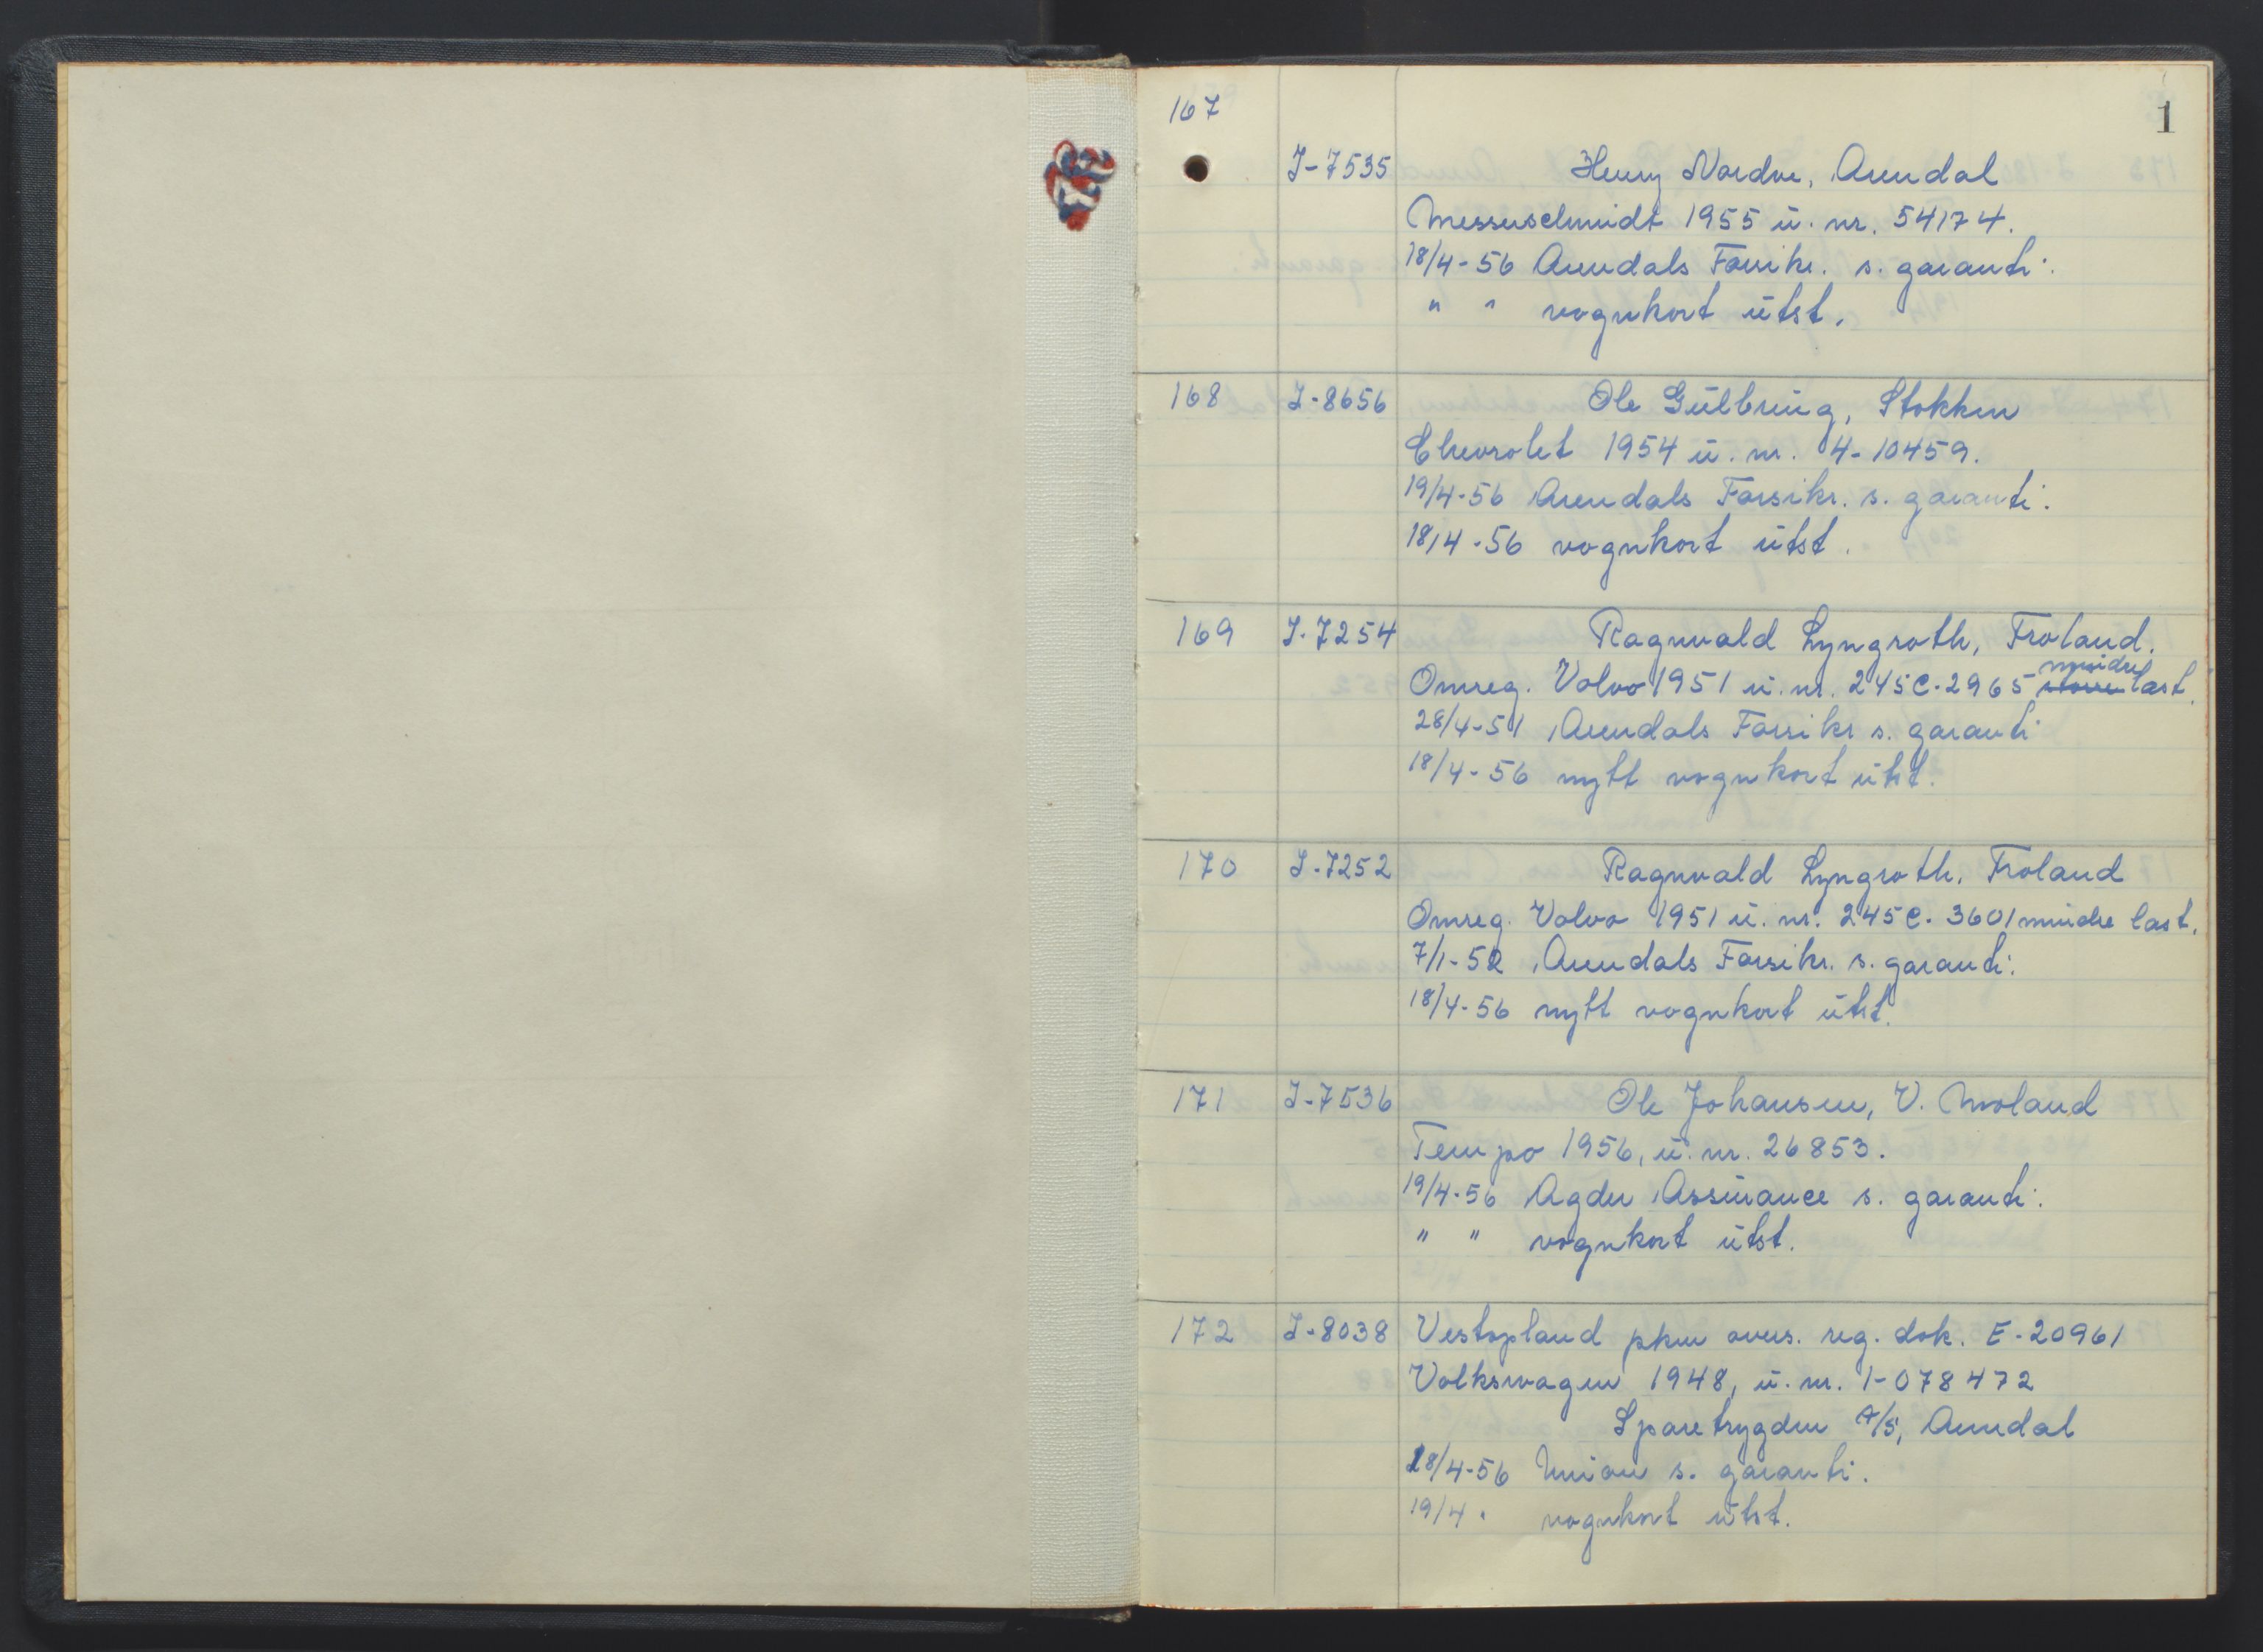 1
167
I-7535 Henry Nordve, Arendal
Messerschmidt 1955 u. nr. 54174.
18/4-56 Arendals Forsikr. s. garanti.
" " vognkort utst.
168 I-8656 Ole Gulbring, Stokken
Chevrolet 1954 u. nr. 04-10459.
19/4-56 Arendals Forsikr. s. garanti.
18/4-56 vognkort utst.
169 I-7254 Ragnvald Lyngroth, Froland.
mindre
Omreg. Volvo 1951 u. nr. 245C-2965 større last.
28/4-51 Arendals Forsikr s. garanti
18/4-56 nytt vognkort utst.
170 I-7252 Ragnvald Lyngroth, Froland
Omreg. Volvo 1951 u. nr. 245C-3601 mindre last.
7/1-52 Arendals Forsikr. s. garanti.
18/4-56 nytt vognkort utst.
171 I-7536 Ole Johansen, V. Moland
Tempo 1956, u. nr. 26853.
19/4-56 Agder Assurance s. garanti.
" " vognkort utst.
172 I-8038 Vestopland pkm overs. reg. dok. E-20961
Volkswagen 1948, u. nr. 1-078472
Sparetrygden A/S, Arendal
18/4-56 Union s. garanti.
19/4 " vognkort utst.